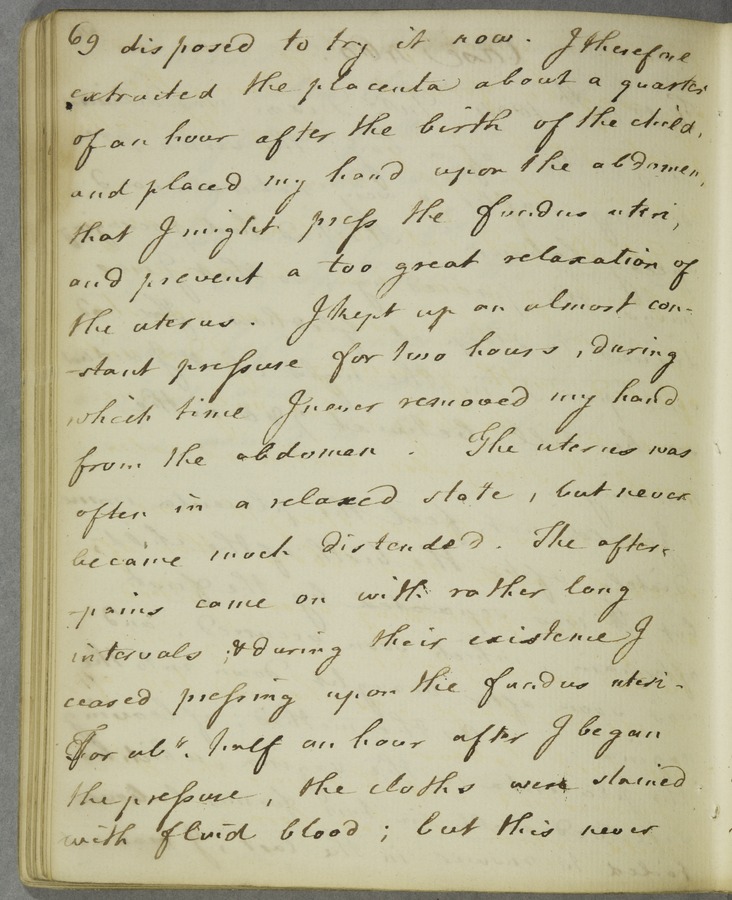 69 disposed to try it now. I therefore
extracted the placenta about a quarter
of an hour after the birth of the child,
and placed my hand upon the abdomen,
that I might press the fundus uteri,
and prevent a too great relaxation of
the uterus. I kept up an almost con-
-stant pressure for two hours, during
which time I never removed my hand
from the abdomen. The uterus was
often in a relaxed state, but never
became much distended. The after-
-pains came on with rather long
intervals, & during their existence I
ceased pressing upon the fundus uteri.
For abt. half an hour after I began
the pressure, the cloths were stained
with fluid blood; but this never